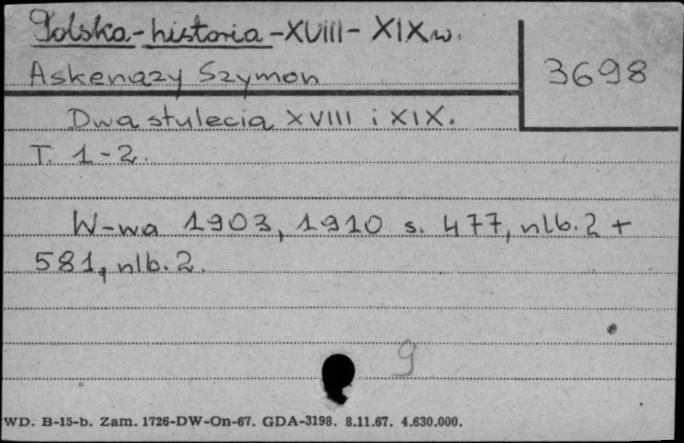 Polska-historia-XVIII-XIXw.
Askenazy Szymon
3698
Dwa stulecia XVIII i XIX.
T. 1-2.
W-wa 1903, 1910 s. 477, nlb. 2 +
581, nlb. 2.
9
WD. B-15-b. Zam. 1726-DW-On-67. GDA-3198. 8.11.67. 4.630.000.